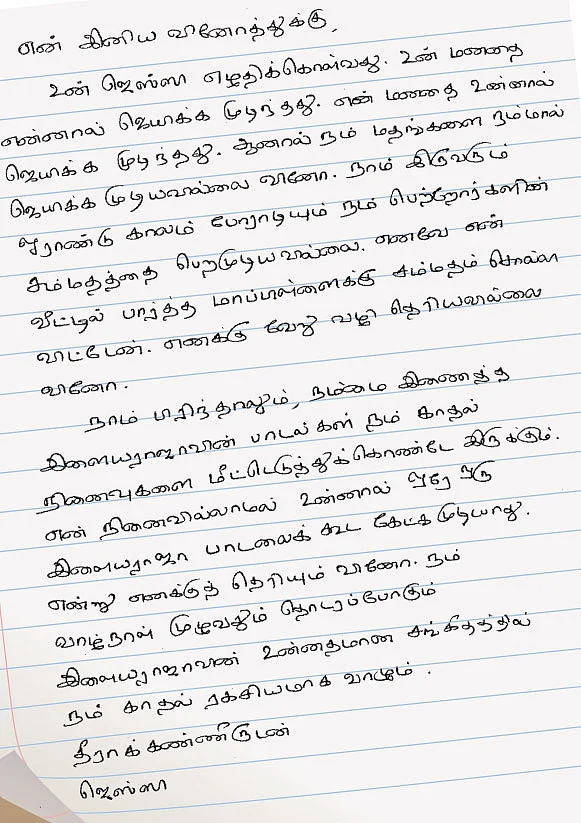 என் இனிய வினோத்துக்கு,
உன் ஜெஸ்ஸி எழுதிக்கொள்வது. உன் மனதை
என்னால் ஜெயிக்க முடிந்தது. என் மனதை உன்னால்
ஜெயிக்க முடிந்தது. ஆனால் நம் மதங்களை நம்மால்
ஜெயிக்க முடியவில்லை வினோ. நாம் இருவரும்
ஓராண்டு காலம் போராடியும் நம் பெற்றோர்களின்
சம்மதத்தை பெறமுடியவில்லை. எனவே என்
வீட்டில் பார்த்த மாப்பிள்ளைக்கு சம்மதம் சொல்லி
விட்டேன். எனக்கு வேறு வழி தெரியவில்லை
வினோ.
நாம் பிரிந்தாலும், நம்மை இணைத்த
இளையராஜாவின் பாடல்கள் நம் காதல்
நினைவுகளை மீட்டெடுத்துக்கொண்டே இருக்கும்.
என் நினைவில்லாமல் உன்னால் ஒரே ஒரு
இளையராஜா பாடலைக் கூட கேட்க முடியாது.
என்று எனக்குத் தெரியும் வினோ. நம்
வாழ்நாள் முழுவதும் தொடரப்போகும்
இளையராஜாவின் உன்னதமான சங்கீதத்தில்
நம் காதல் ரகசியமாக வாழும்.
தீராக்கண்ணீருடன்
ஜெஸ்ஸி